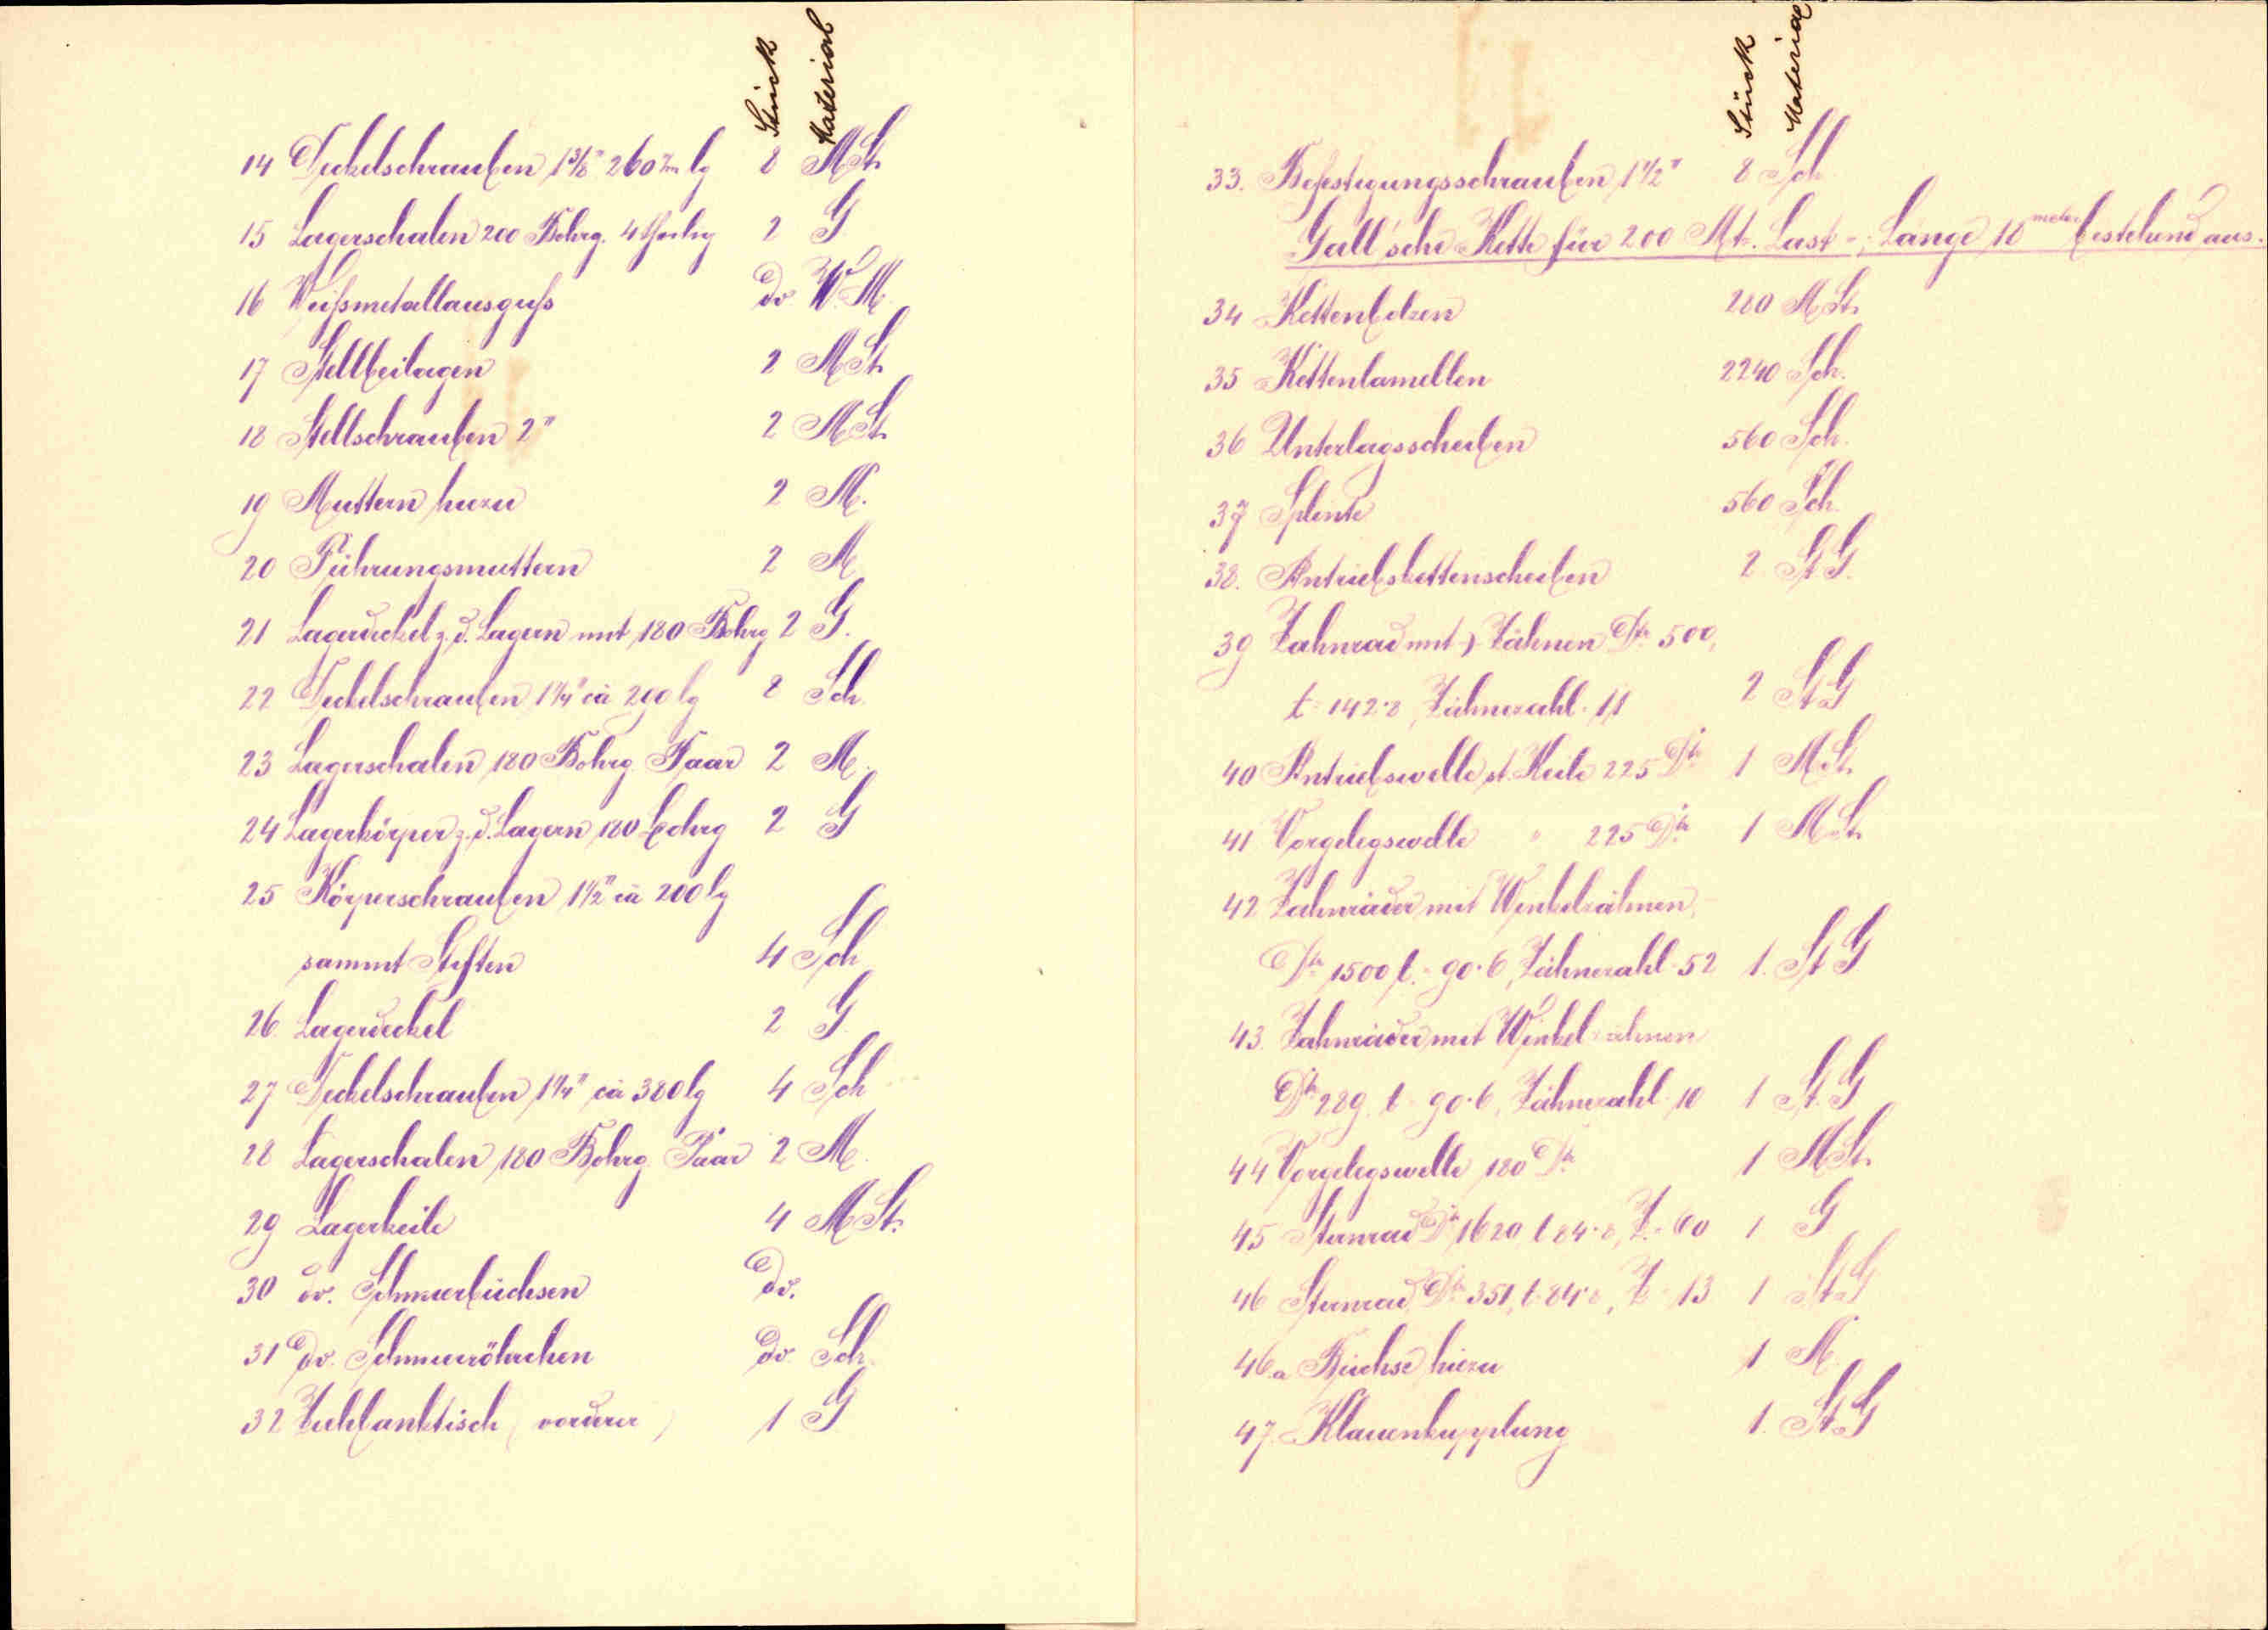 Stück Material
14 Deckelschrauben 1 3/8" 260 m/m lg 8 M St.
15 Lagerschalen 200 Bohrg. 4 theilig 2 G
16 Weißmetallausguß do W. M.
17 Stellbeilagen 2 M St.
18 Stellschrauben 2" 2 M St.
19 Muttern hiezu 2 M.
20 Führungsmuttern 2 M
21 Lagerdeckel z. d. Lagern mit 180 Bohrg 2 G.
22 Deckelschrauben 1 1/4" ca 290 lg 8 Sch.
23 Lagerschalen 180 Bohrg. Paar 2 M.
24 Lagerkörper z. d. Lagern 180 Bohrg 2 G
25 Körperschrauben 1 1/2" ca 200 lg
sammt Stiften 4 Sch
26. Lagerdeckel 2 G.
27 Deckelschrauben 1 1/4" ca 380 lg 4 Sch
28 Lagerschalen 180 Bohrg. Paar 2 M.
29 Lagerkeile 4 M St.
30 do. Schmierbüchsen do.
31 do. Schmierröhrchen do. Sch.
32 Ziehbanktisch (vorderer) 1 G
Stück Material
33. Befestigungsschrauben 1 1/2" 8 Sch
Gall'sche Kette für 200 Mt. Last - Länge 10 meter bestehend aus.
34 Kettenbolzen 280 M St.
35 Kettenlamellen 2240 Sch.
36 Unterlagsscheiben 560 Sch.
37 Splinte 560 Sch.
38. Antriebskettenscheiben 2 St G.
39 Zahnrad mit Zähnen Dtr 500,
t = 142·8, Zähnezahl 11 2 St G
40 Antriebswelle s. Keile 225 Dtr 1 M St.
41 Vorgelegswelle " 225 Dtr 1 M St.
42 Zahnräder mit Winkelzähnen,
Dtr 1500 t = 90·6, Zähnezahl 52 1. St G
43. Zahnräder mit Winkelzähnen
Dtr 289 t = 90·6, Zähnezahl 10 1 St. G
44 Vorgelegswelle 180 Dtr 1 M St.
45 Stirnrad Dtr 1620, t 84·8, Z. = 60 1 G
46 Stirnrad Dtr 351, t = 84·8, Z = 13 1 St G
46.a Büchse hiezu 1 M.
47. Klauenkupplung 1. St G